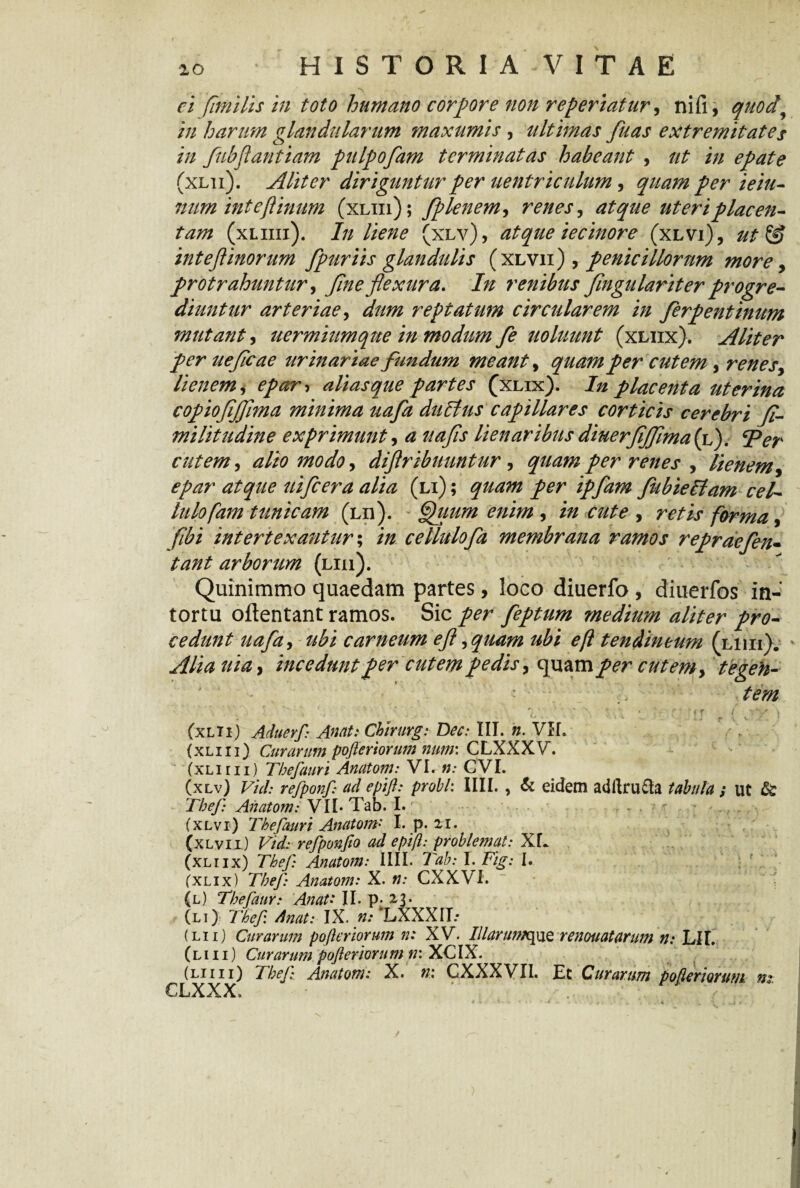 20 HISTORIA VITAE
ei ſimilis in toto humano corpore non reperiatur, niſi, quod,
in harum glandularum maxumis, ultimas ſuas extremitates
in ſubſtantiam pulpoſam terminatas habeant, ut in epate
(XLII). Aliter diriguntur per uentriculum, quam per ieiu-
num inteſtinum (XLIII); ſplenem, renes, atque uteri placen-
tam (XLIIII). In liene (XLV), atque iecinore (XLVI), ut &
inteſtinorum ſpuriis glandulis (XLVII), penicillorum more,
protrahuntur, ſine flexura. In renibus ſingulariter progre-
diuntur arteriae, dum reptatum circularem in ſerpentinum
mutant, uermiumque in modum ſe uoluunt (XLIIX). Aliter
per ueſicae urinariae fundum meant, quam per cutem, renes,
lienem, epar, aliasque partes (XLIX). In placenta uterina
copioſiſſima minima uaſa ductus capillares corticis cerebri ſi-
militudine exprimunt, a uaſis lienaribus diuerſiſſima (L). Per
cutem, alio modo, diſtribuuntur, quam per renes, lienem,
epar atque uiſcera alia (LI); quam per ipſam ſubiectam cel-
luloſam tunicam (LII). Quum enim, in cute, retis forma,
ſibi intertexantur; in celluloſa membrana ramos repraeſen-
tant arborum (LIII).
Quinimmo quaedam partes, loco diuerſo, diuerſos in-
tortu oſtentant ramos. Sic per ſeptum medium aliter pro-
cedunt uaſa, ubi carneum eſt, quam ubi eſt tendineum (LIIII).
Alia uia, incedunt per cutem pedis, quam per cutem, tegen-
tem
(XLII) Aduerſ: Anat: Chirurg: Dec: III. n. VII.
(XLIII) Curarum poſteriorum num: CLXXXV.
(XLIIII) Theſauri Anatom: VI. n: CVI.
(XLV) Vid: reſponſ: ad epiſt: probl: IIII., & eidem adſtructa tabula; ut &
Theſ: Anatom: VII. Tab. I.
(XLVI) Theſauri Anatom: I. p. 21.
(XLVII) Vid: reſponſio ad epiſt: problemat: XI.
(XLIIX) Theſ: Anatom: IIII. Tab: I. Fig: I.
(XLIX) Theſ: Anatom: X. n: CXXVI.
(L) Theſaur: Anat: II. p. 23.
(LI) Theſ: Anat: IX. n: LXXXII:
(LII) Curarum poſteriorum n: XV. Illarumque renouatarum n: LII.
(LIII) Curarum poſteriorum n: XCIX.
(LIIII) Theſ: Anatom: X. n: CXXXVII. Et Curarum poſteriorum n:
CLXXX.